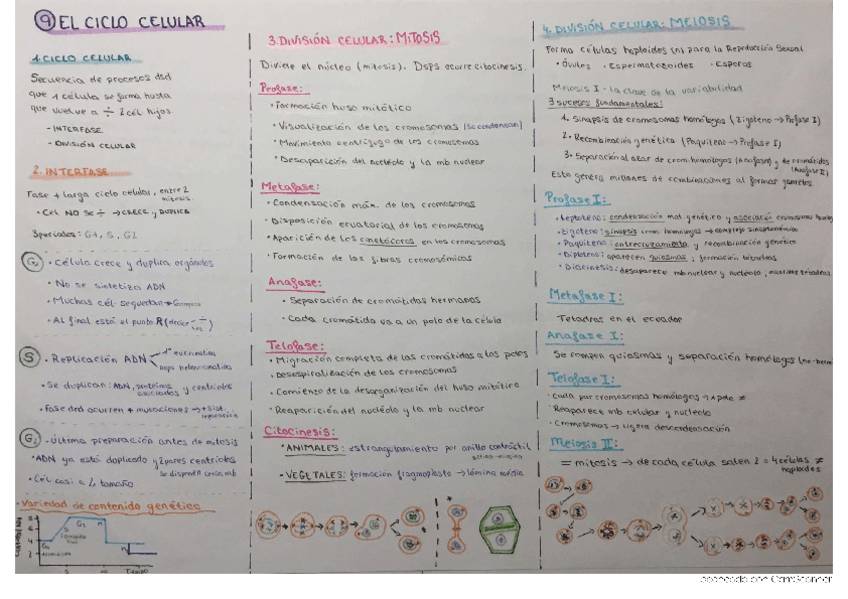 9 EL CICLO CELULAR
1. CICLO CELULAR
Secuencia de procesos dsd
que 1 célula se forma hasta
que vuelve a ÷ 2 cél hijas.
- INTERFASE
- DIVISIÓN CELULAR
2. INTERFASE
Fase + larga ciclo celular, entre 2
mitosis.
• Cél NO se ÷ → CRECE y DUPLICA
3 periodos: G1, S, G2
G1 • Célula crece y duplica orgánulos
• No se sintetiza ADN
• Muchas cél se quedan
• Al final está el punto R
S • Replicación ADN
1º eucromatina
Dsps heterocromatina
• Se duplican: ADN, proteínas y centriolos
asociadas
• Fase dnd ocurren + mutaciones →
G2 • Última preparación antes de mitosis
• ADN ya está duplicado y 2 pares centriolos
• Cél casi x 2 tamaño
• Variedad de contenido genético
G1
S
G2
M
Tiempo
3. DIVISIÓN CELULAR: MITOSIS
Divide el núcleo (mitosis). Dsps ocurre citocinesis.
Profase:
• Formación huso mitótico
• Visualización de los cromosomas (se condensan)
• Movimiento centrífugo de los cromosomas
• Desaparición del nucléolo y la mb nuclear
Metafase:
• Condensación máx. de los cromosomas
• Disposición ecuatorial de los cromosomas
• Aparición de los cinetócoros en los cromosomas
• Formación de las fibras cromosómicas
Anafase:
• Separación de cromátidas hermanas
• Cada cromátida va a un polo de la célula
Telofase:
• Migración completa de las cromátidas a los polos
• Desespiralización de los cromosomas
• Comienzo de la desorganización del huso mitótico
• Reaparición del nucléolo y la mb nuclear
Citocinesis:
• ANIMALES: estrangulamiento por anillo contráctil
actina-miosina
- VEGETALES: formación fragmoplasto → lámina media
4. DIVISIÓN CELULAR: MEIOSIS
Forma células haploides (n) para la Reproducción Sexual
• Óvulos • Espermatozoides • Esporas
Meiosis I - la clave de la variabilidad
3 sucesos fundamentales:
1. Sinapsis de cromosomas homólogos (Zigoteno → Profase I)
2. Recombinación genética (Paquiteno → Profase I)
3. Separación al azar de crom. homólogos (Anafase I) y de cromátidas
(Anafase II)
Esto genera millones de combinaciones al formar gametos
Profase I:
• Leptoteno: condensación mat. genético y
• Zigoteno: sinapsis crom. homólogos → complejo sinaptonémico
• Paquiteno: entrecruzamiento y recombinación genética
• Diploteno: aparecen quiasmas, formación tétradas
• Diacinesis: desaparece mb nuclear y nucléolo,
Metafase I:
Tétradas en el ecuador
Anafase I:
Se rompen quiasmas y separación homólogos
Telofase I:
• Cada par cromosomas homólogos → 1 polo ≠
Reaparece mb celular y nucléolo
• Cromosomas → ligera descondensación
Meiosis II:
= mitosis → de cada célula salen 2 = 4 células ≠
haploides
Escaneado con CamScanner